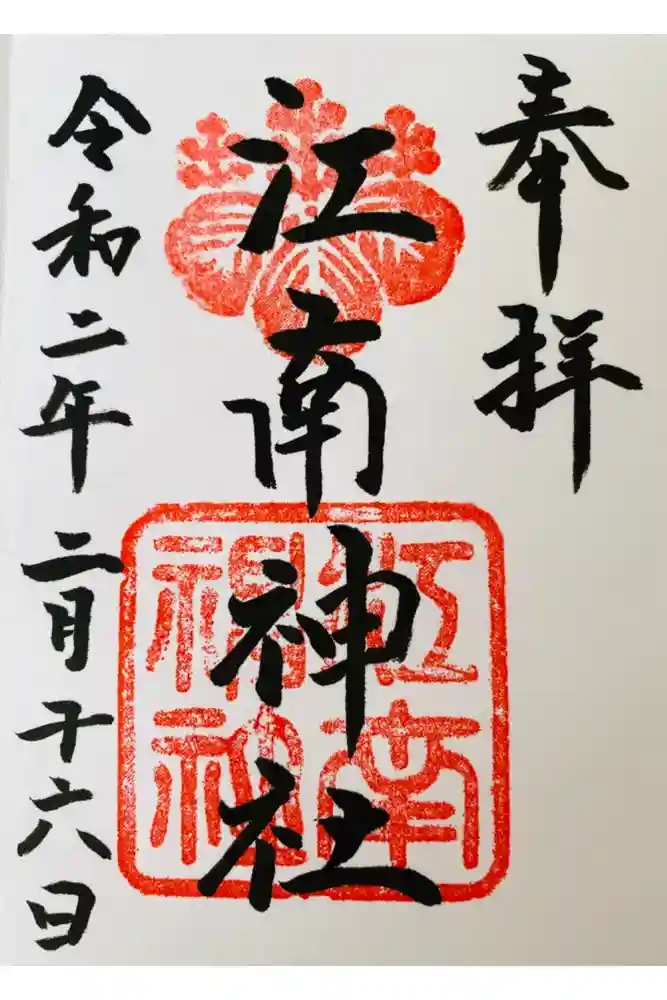 奉拝
江南神社
江南神社
令和二年 二月十六日